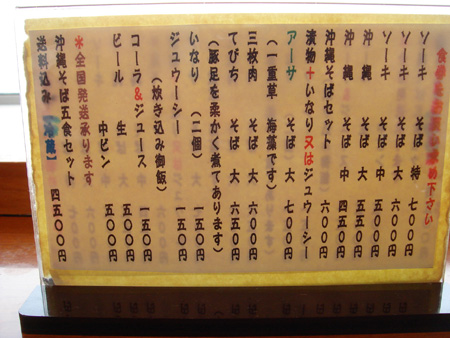 食券をお買い求め下さい
ソーキ そば 特 七〇〇円
ソーキ そば 大 六〇〇円
ソーキ そば 中 五〇〇円
沖縄 そば 大 五五〇円
沖縄 そば 中 四五〇円
沖縄そばセット 六〇〇円
漬物+いなり又はジュウーシー
アーサ そば 大 七〇〇円
(一重草 海藻です)
三枚肉 そば 大 六五〇円
てびち そば 大 六五〇円
(豚足を柔かく煮てあります)
いなり (二個) 一五〇円
ジュウーシー 一五〇円
(炊き込み御飯)
コーラ&ジュース 一五〇円
ビール 生 五〇〇円
中ビン 五〇〇円
※全国発送承ります
沖縄そば五食セット
送料込み 【冷蔵】 四五〇〇円